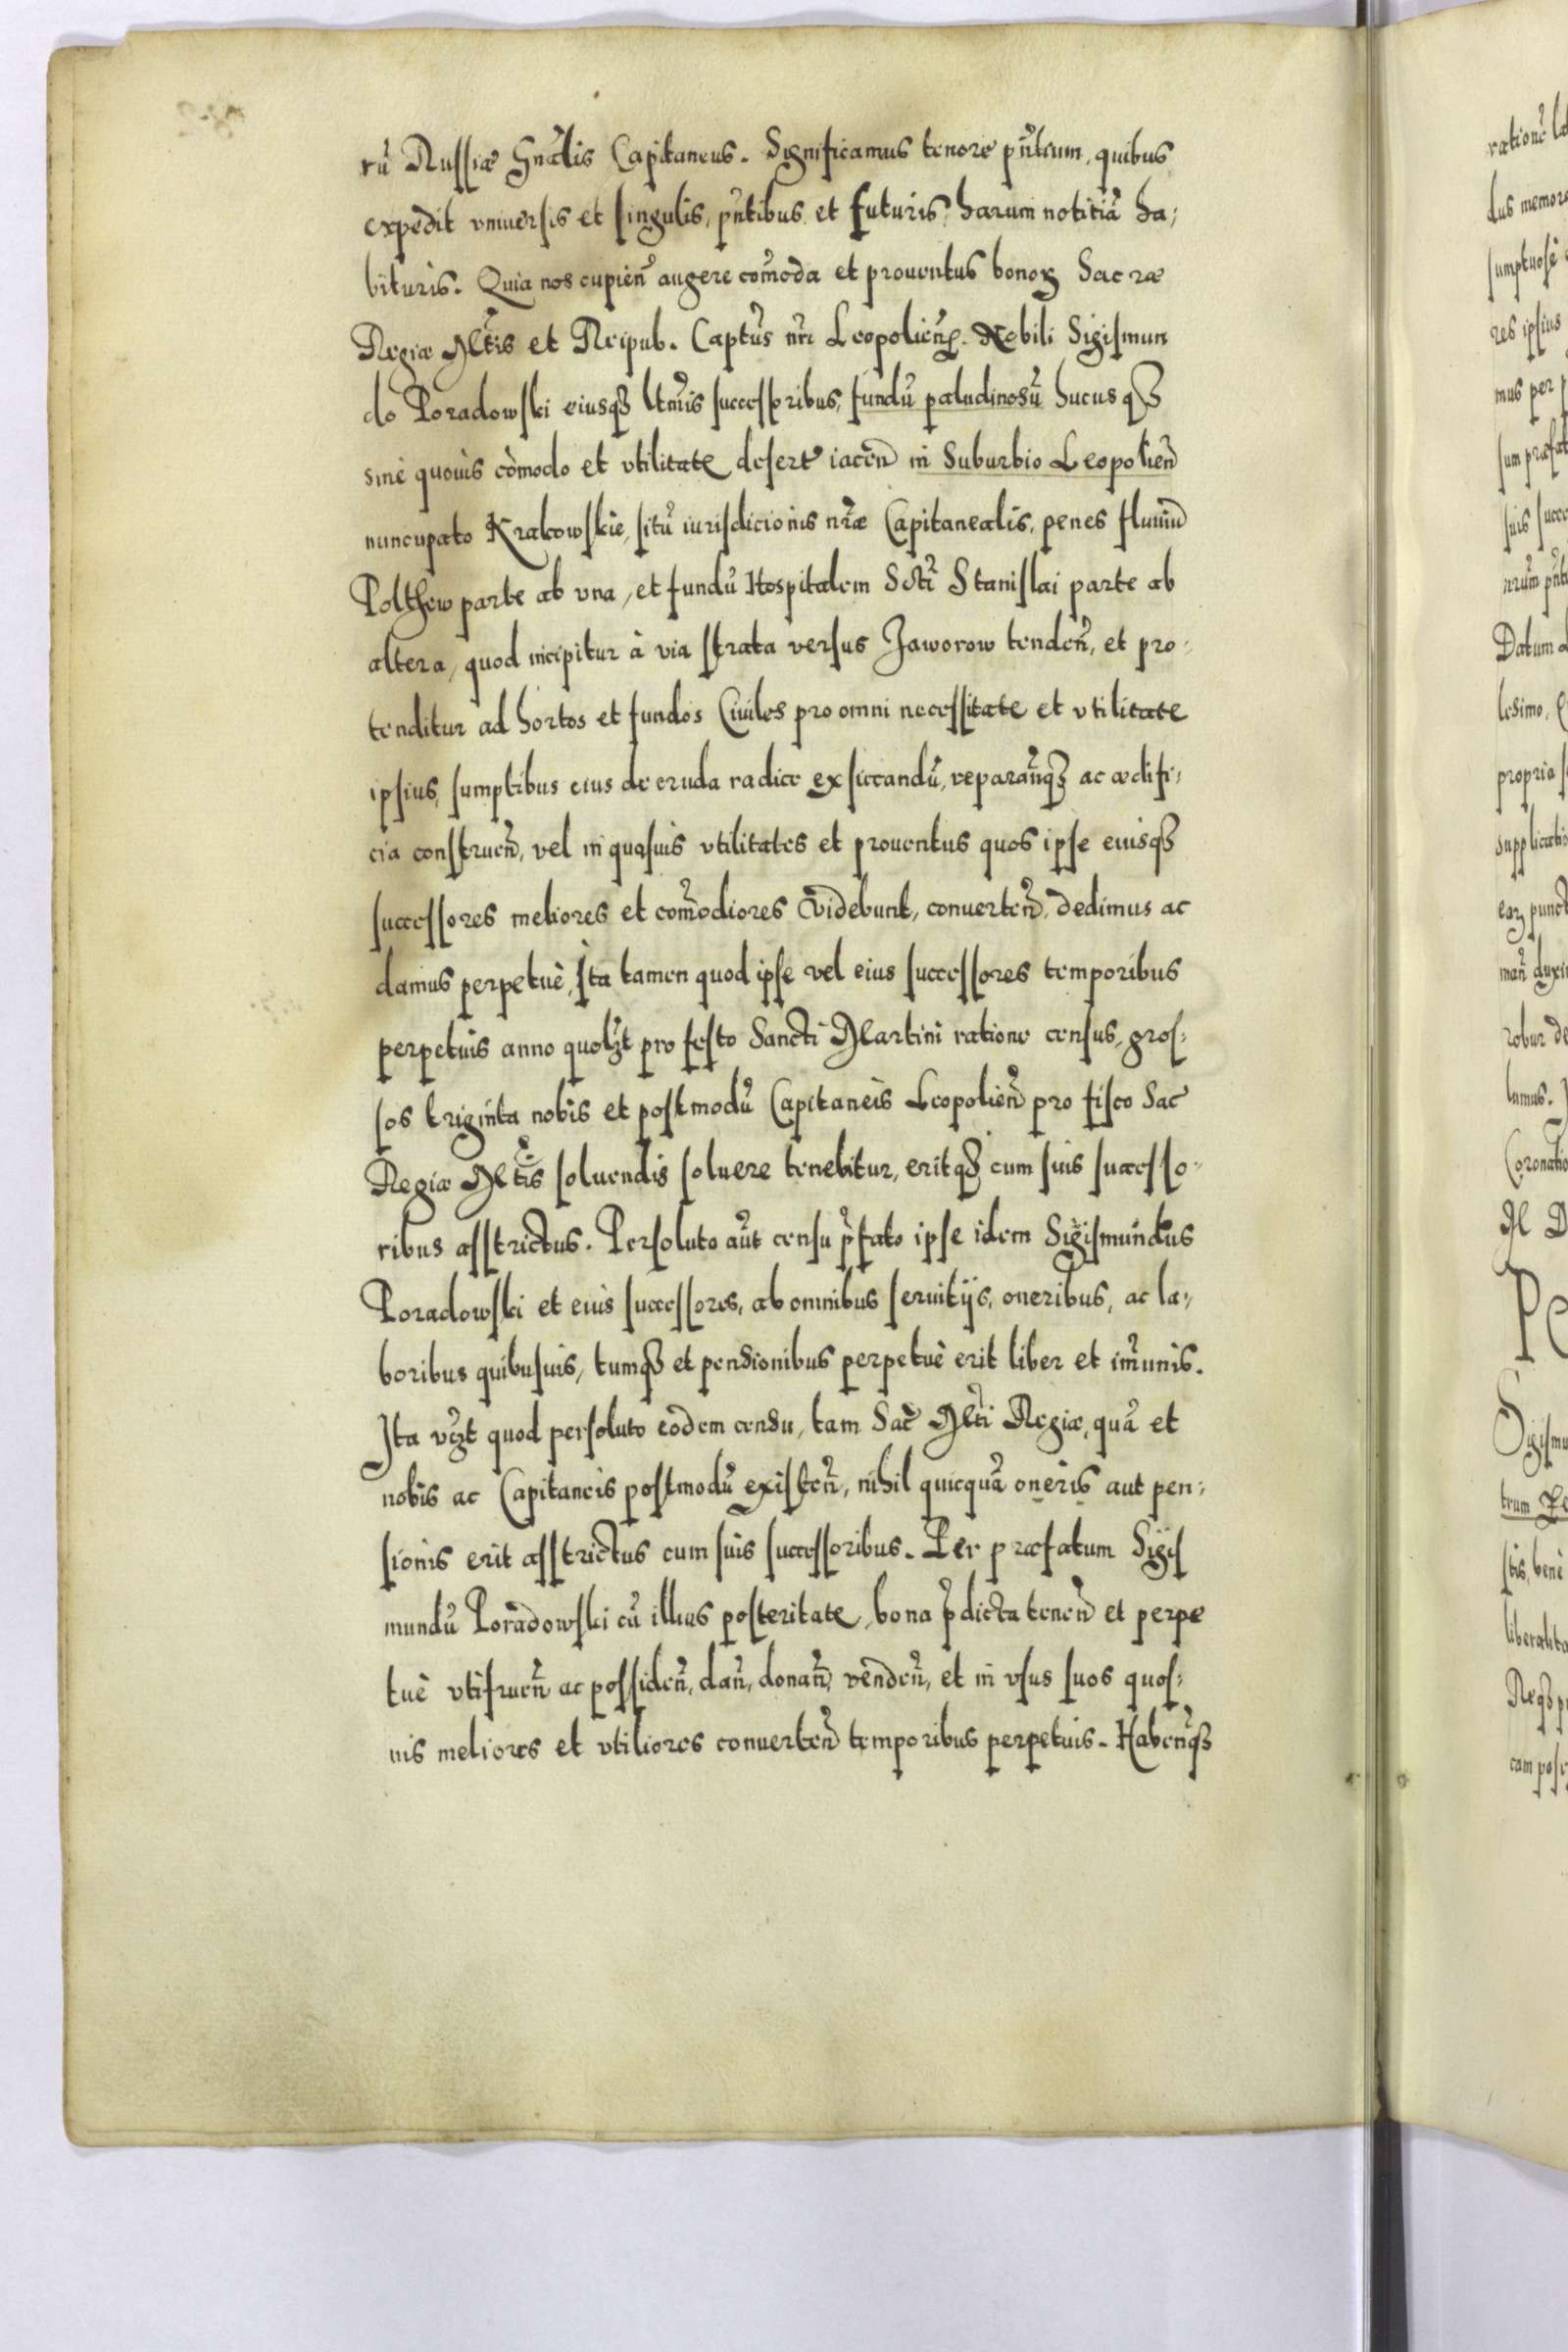 rũ Russiæ Gnãlis Capitaneus. Significamus tenore pñtium, quibus
expedit vniuersis et singulis, pñtibus et futuris, harum notitiã ha,
bituris. Quia nos cupieñ augere com̃oda et prouentus bonoꝝ Sac ræ
Regiæ Mt̃is et Reipub. Captũs nr̃i Leopolień. Nobili Sigismun
do Poradowski eiusqꝫ ltm̃is successoribus, fundũ paludinosũ hucusqꝫ
sine quouis còmodo et vtilitate desert iaceñ in Suburbio Leopolieñ
nuncupato Krakowskie, sitũ iurisdicionis nr̃æ Capitanealis, penes fluuiũ
Polthew parte ab vna, et fundũ Hospitalem Scti Stanislai parte ab
altera, quod incipitur à via strata versus Jaworow tendeñ, et pro-
tenditur ad hortos et fundos Ciuiles pro omni necessitate et vtilitate
ipsius, sumptibus eius de cruda radice exsiccandũ, reparañqꝫ ac ædifi,
cia construeñ, vel in quosuis vtilitates et prouentus quos ipse eiusqꝫ
successores meliores et com̃odiores videbunt, conuerteñ, dedimus ac
damus perpetuè, Ita tamen quod ipse vel eius successores temporibus
perpetuis anno quolꝫt pro festo Sancti Martini ratione census, gros-
sos triginta nobis et postmodũ Capitaneis Leopolieñ pro fisco Sac
Regiæ Mt̃is soluendis soluere tenebitur, eritqꝫ cum suis successo-
ribus asstrictus. Persoluto aũt censu p̃fato ipse idem Sigismundus
Poradowski et eius successores, ab omnibus seruitijs, oneribus, ac la-
boribus quibusuis, tumqꝫ et pensionibus perpetuè erit liber et im̃unis.
Ita vꝫt quod persoluto eodem censu, tam Sac̃ Mt̃i Regiæ, quã et
nobis ac Capitaneis postmodũ existeñ, nihil quicquã oneris aut pen-
sionis erit asstrictus cum suis successoribus. Per præfatum Sigis
mundũ Poradowski cũ illius posteritate, bona p̃dicta teneñ et perpe
tuè vtifrueñ ac possideñ, dañ, donañ, vendeñ, et in vsus suos quos-
uis meliores et vtiliores conuerteñ temporibus perpetuis. Habeñqꝫ